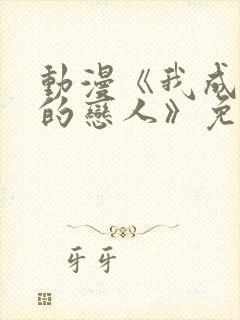 動漫《我成
的戀人》免
牙牙